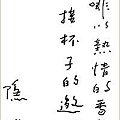 啡以熱情的香
接杯子的邀